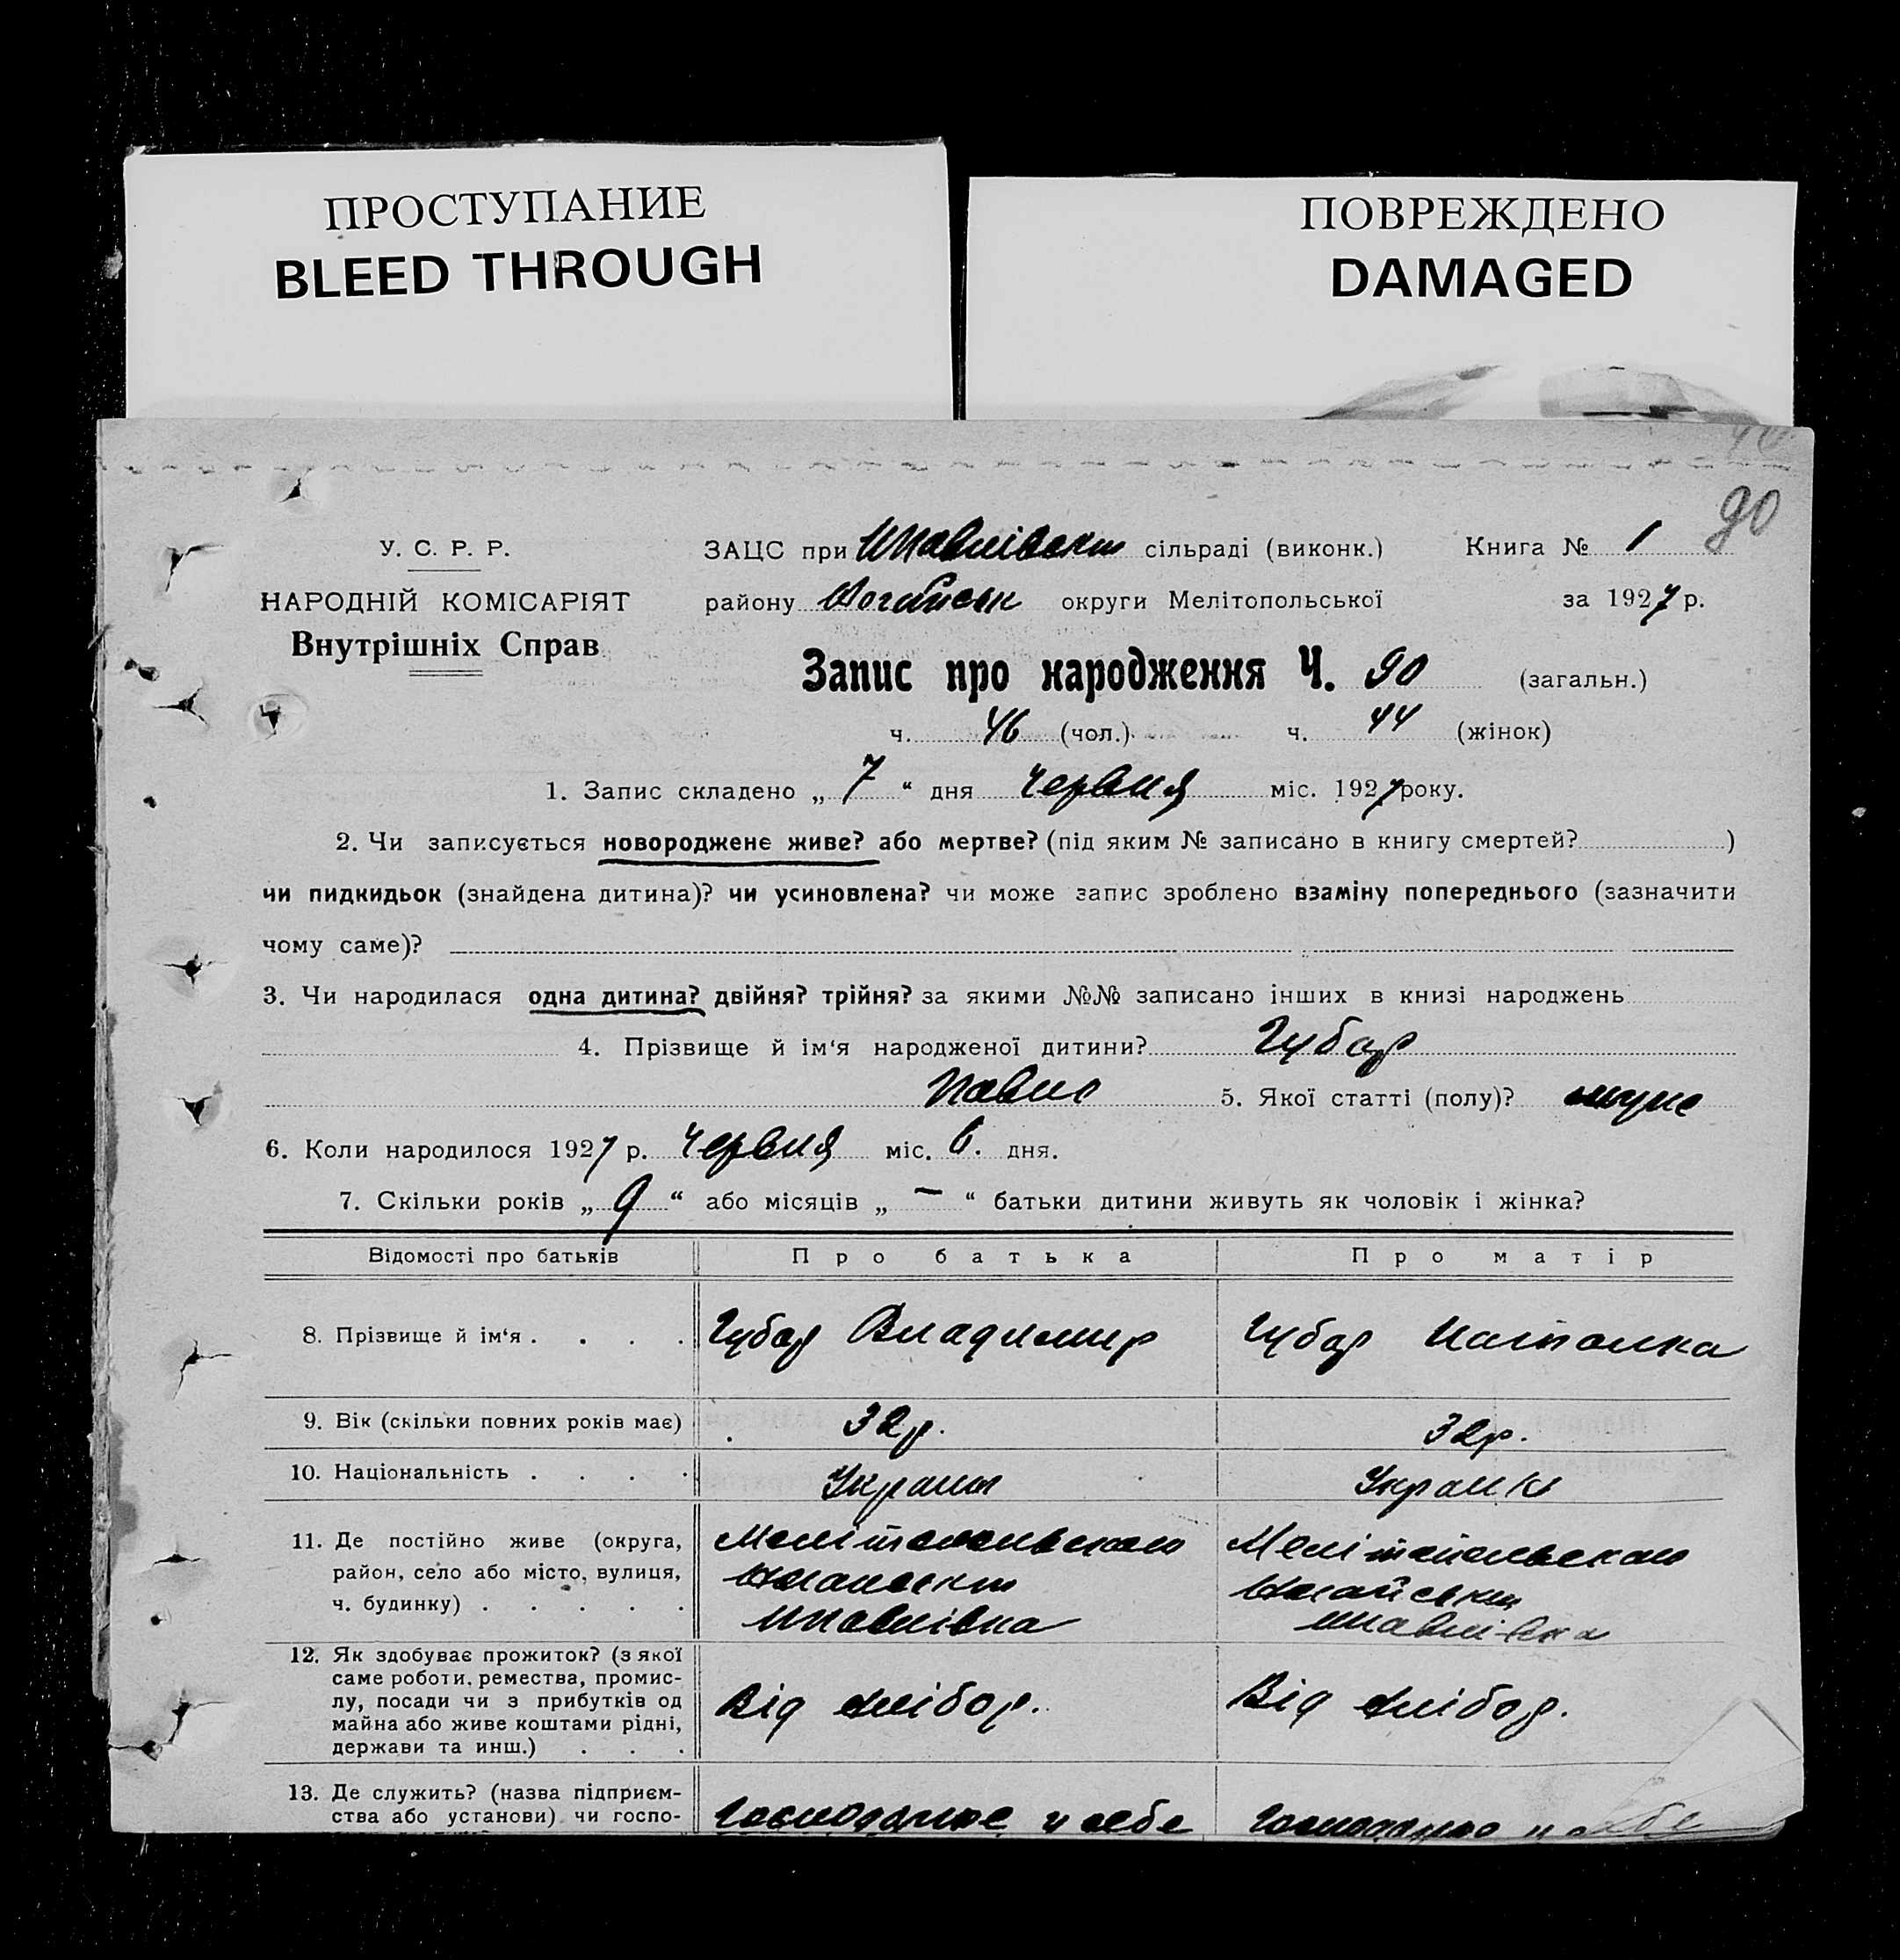 ПРОСТУПАНИЕ
BLEED THROUGH
ПОВРЕЖДЕНО
DAMAGED
90
У. С. Р. Р.
НАРОДНІЙ КОМІСАРІЯТ
Внутрішніх Справ
ЗАЦС при сільраді (виконк.) Книга № 1
району округи Мелітопольської за 1927 р.
Запис про народження Ч. 90 (загальн.)
ч. 46 (чол.) ч. 44 (жінок)
1. Запис складено „ 7 “ дня червня міс. 1927 року.
2. Чи записується новороджене живе? або мертве? (під яким № записано в книгу смертей? )
чи пидкидьок (знайдена дитина)? чи усиновлена? чи може запис зроблено взаміну попереднього (зазначити
чому саме)?
3. Чи народилася одна дитина? двійня? трійня? за якими №№ записано інших в книзі народжень
4. Прізвище й ім‘я народженої дитини? Губар
Павло 5. Якої статті (полу)?
6. Коли народилося 1927 р. червня міс. 6. дня.
7. Скільки років „ 9 “ або місяців „ — “ батьки дитини живуть як чоловік і жінка?
Відомості про батьків Про батька Про матір
8. Прізвище й ім‘я . . . . Губар Владимир Губар Наталка
9. Вік (скільки повних років має) 32р. 32р.
10. Національність . . . .
11. Де постійно живе (округа,
район, село або місто, вулиця,
ч. будинку) . . . . .
12. Як здобуває прожиток? (з якої
саме роботи, ремества, промис-
лу, посади чи з прибутків од
майна або живе коштами рідні,
держави та инш.) . . .
Від хлібор. Від хлібор.
13. Де служить? (назва підприєм-
ства або установи) чи госпо-
у себе